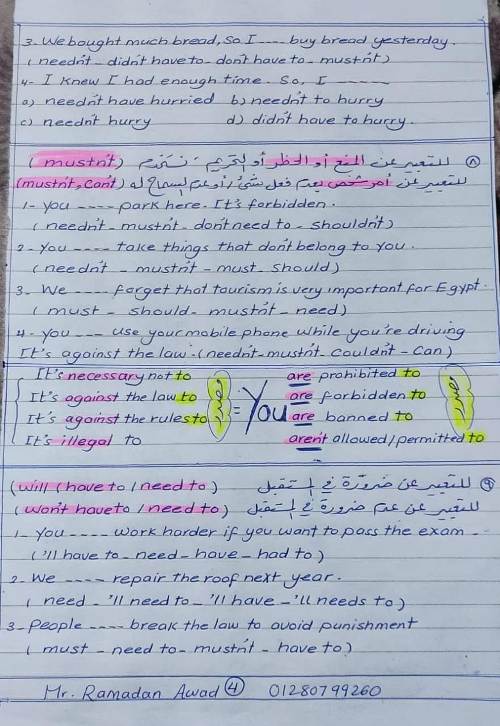 3- We bought much bread, so I ---- buy bread yesterday.
( needn't - didn't have to - don't have to - mustn't )
4- I knew I had enough time. So, I -----
a) needn't have hurried b) needn't to hurry
c) needn't hurry d) didn't have to hurry.
٨ للتعبير عن المنع أو الحظر أو التحريم، نستخدم ( mustn't )
للتعبير عن أمر شخص بعدم فعل شئ / أو عدم السماح له (mustn't, can't)
1- You ---- park here. It's forbidden.
(needn't - mustn't - don't need to - shouldn't)
2- You ---- take things that don't belong to you.
(needn't - mustn't - must - should)
3- We ---- forget that tourism is very important for Egypt.
( must - should - mustn't - need )
4- You --- use your mobile phone while you're driving
It's against the law. (needn't - mustn't - couldn't - can)
It's necessary not to are prohibited to
It's against the law to are forbidden to
It's against the rules to = You are banned to
It's illegal to aren't allowed / permitted to
٩ للتعبير عن ضرورة في المستقبل (will (have to / need to )
للتعبير عن عدم ضرورة في المستقبل ( won't have to / need to )
1- You ---- work harder if you want to pass the exam.
('ll have to - need - have - had to )
2- We ---- repair the roof next year.
( need - 'll need to - 'll have - 'll needs to )
3- People ---- break the law to avoid punishment
( must - need to - mustn't - have to )
Mr. Ramadan Awad 4 01280799260